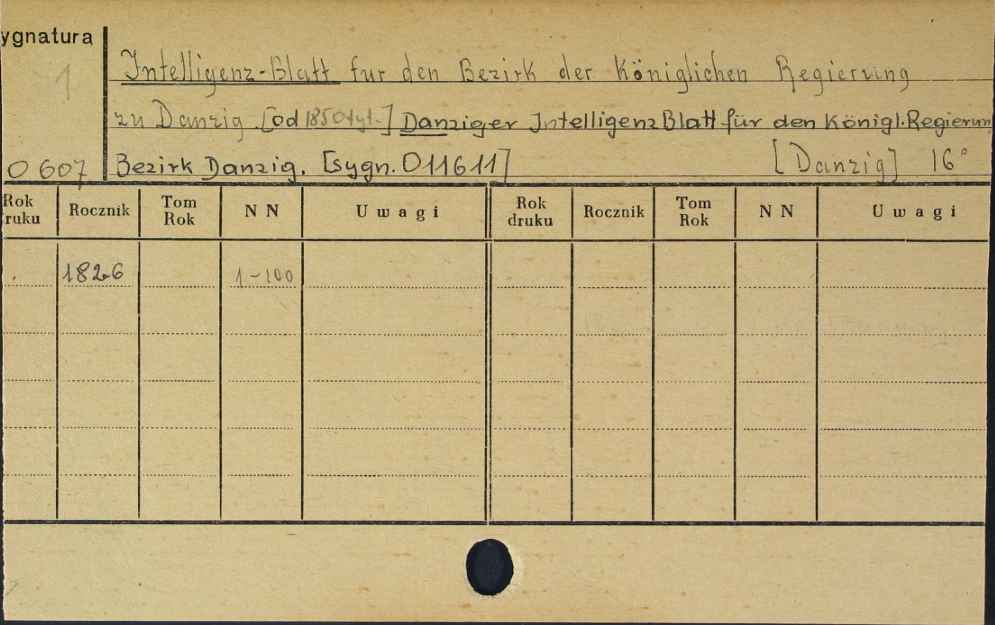 ygnatura
1
Intelligenz-Blatt fur den Bezirk der Königlichen Regierung
zu Danzig. [od 1850 tyt.] Danziger Intelligenz Blatt für den Königl. Regierun
O 607 Bezirk Danzig. [sygn. O11611] [Danzig] 16°
Rok ruku Rocznik Tom Rok N N Uwagi Rok druku Rocznik Tom Rok N N Uwagi
1826 1-100